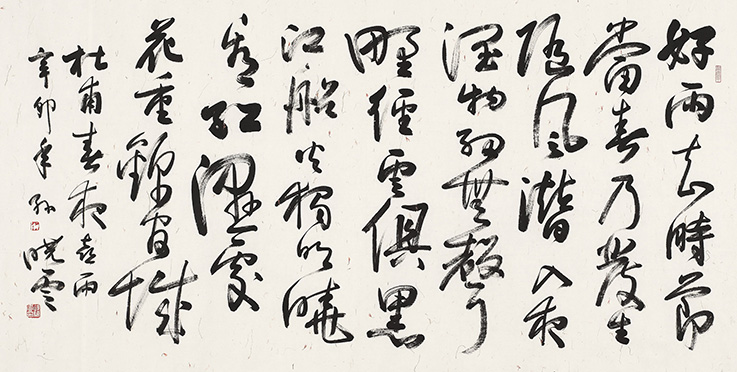 好雨知時節
當春乃發生
随風潛入夜
潤物細無聲
野徑雲俱黑
江船火獨明曉
看紅濕處
花重錦官城
杜甫春夜喜雨
辛卯年孫曉雲